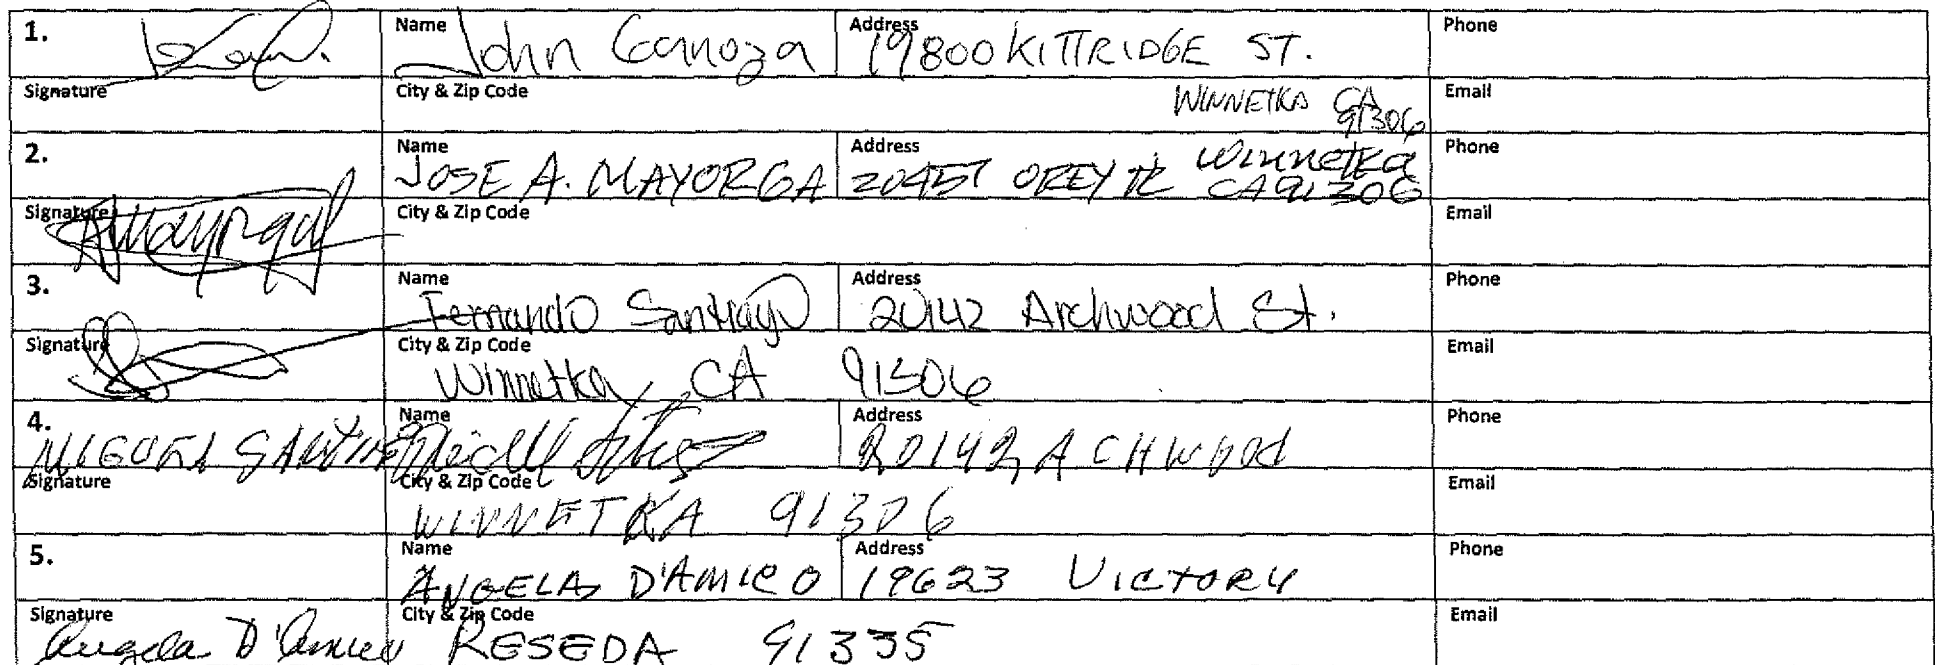 1. Name John Ganoza Address 19800 KITTRIDGE ST. Phone
Signature City & Zip Code WINNETKA CA 91306 Email
2. Name JOSE A. MAYORGA Address 20457 Winnetka CA 91306 Phone
Signature AMayorga City & Zip Code Email
3. Name Fernando Santiago Address 20142 Archwood St. Phone
Signature City & Zip Code Winnetka, CA 91306 Email
4. MIGUEL Name Address 20142 ACHWOOd Phone
Signature City & Zip Code WINNETKA 91306 Email
5. Name ANGELA D'AMICO Address 19623 VICTORY Phone
Signature Angela D'Amico City & Zip Code RESEDA 91335 Email